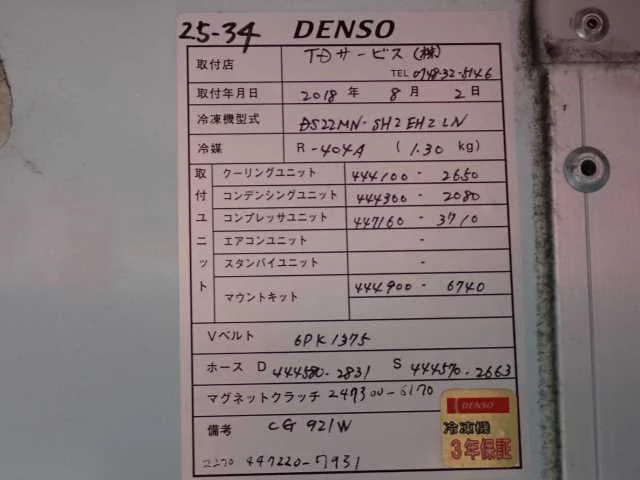 25-34 DENSO
取付店 TDサービス(株)
TEL 0748-32-5146
取付年月日 2018 年 8 月 2 日
冷凍機型式 DS22MN-SH2EH2LN
冷媒 R-404A (1.30 kg)
取付ユニット
クーリングユニット 444100 - 2650
コンデンシングユニット 444300 - 2080
コンプレッサユニット 447160 - 3710
エアコンユニット -
スタンバイユニット -
マウントキット 444900 - 6740
Vベルト 6PK1375
ホース D 444580-2831 S 444570-2663
マグネットクラッチ 247300-6170
備考 CG 921W
2270 447220-7931
DENSO
冷凍機
3年保証